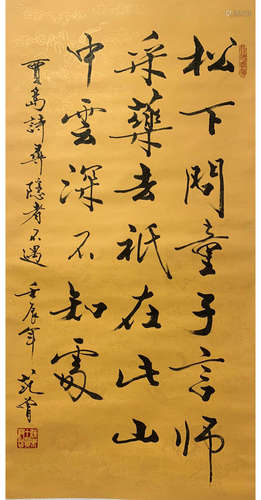 松下問童子言師
采藥去祇在此山
中雲深不知處
賈島詩尋隱者不遇
壬辰年